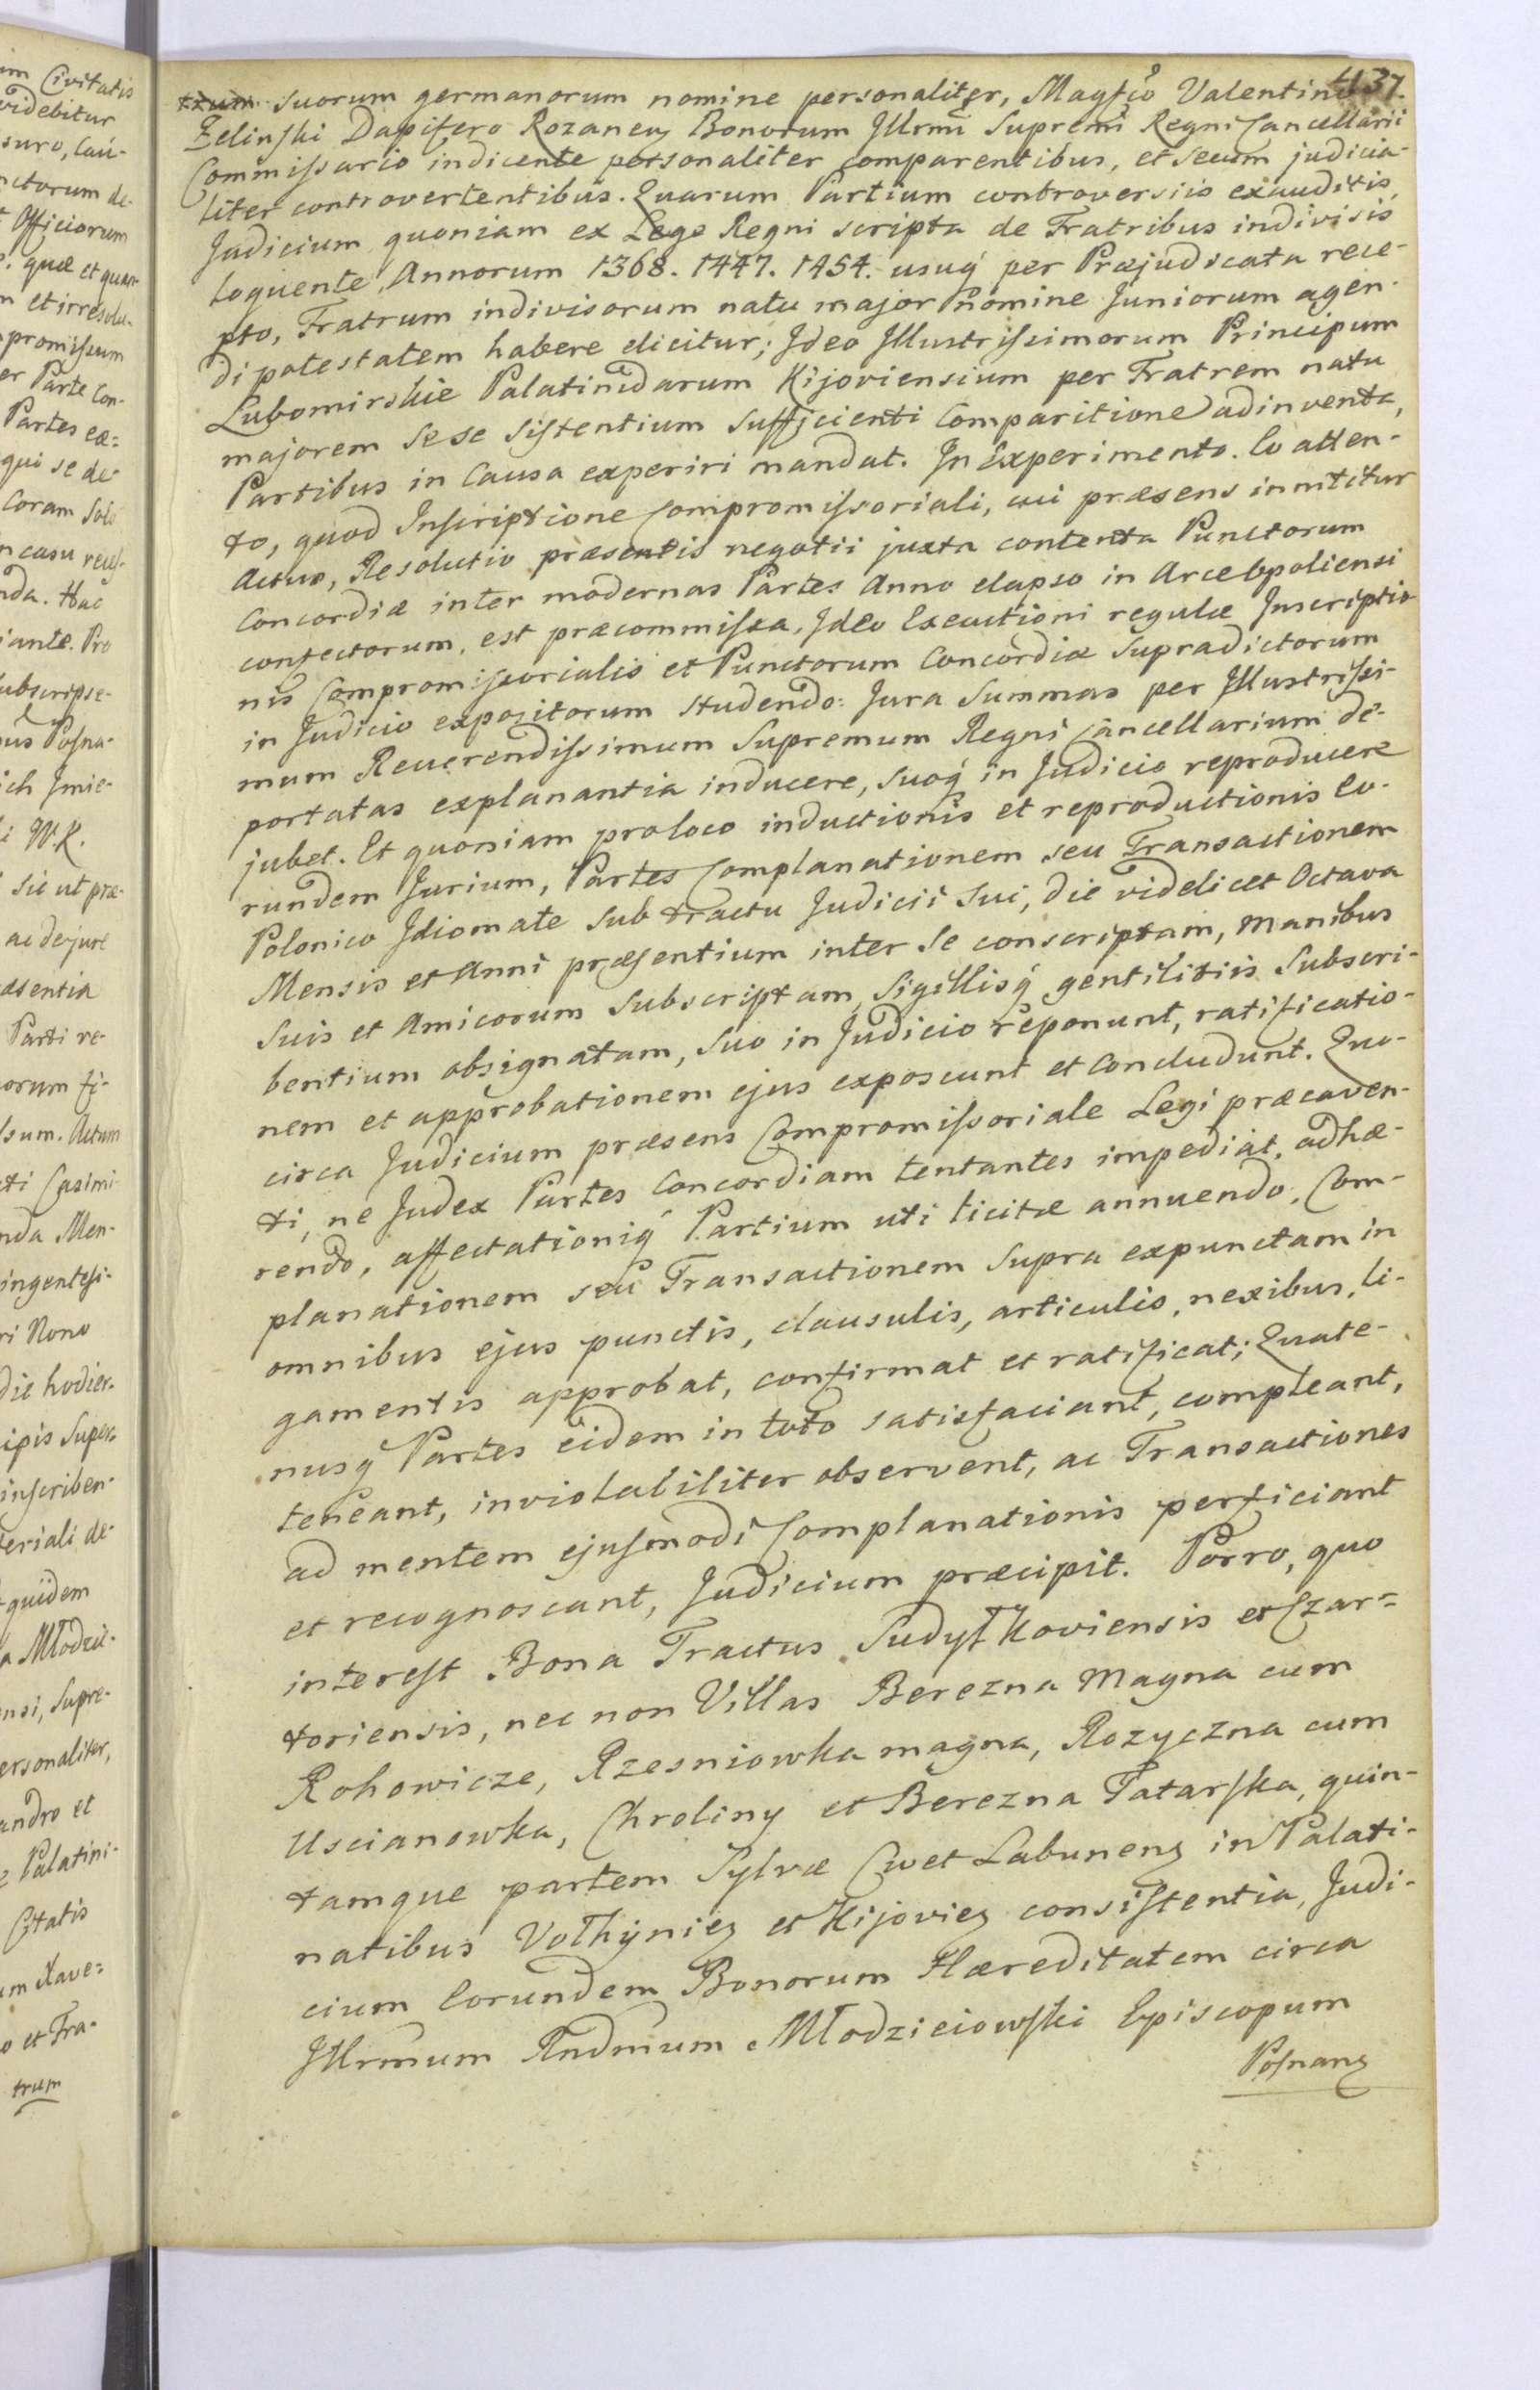 437.
trum suorum germanorum nomine personaliter, Magfco Valentino
Zelinski Dapifero Rozanens Bonorum Illrmi Supremi Regni Cancellarii
Commissario indicente personaliter comparentibus, et secum judicia-
liter controvertentibus. Quarum Partium controversiis exauditis,
Judicium quoniam ex Lege Regni scripta de Fratribus indivisis
loquente, Annorum 1368. 1447. 1454. usuq́ per Præjudicata rece-
pto, Fratrum indivisorum natu major nomine Juniorum agen-
di potestatem habere dicitur; Ideo Illustrissimorum Principum
Lubomirskie Palatinidarum Kijoviensium per Fratrem natu
majorem sese sistentium sufficienti Comparitione adinventa,
Partibus in Causa experiri mandat. In Experimento. Eo atten-
to, quod Inscriptione Compromissoriali, cui præsens innititur
Actus, Resolutio præsentis negotii juxta contenta Punctorum
Concordiæ inter modernas Partes Anno elapso in Arce Opoliensi
confectorum, est præcommissa, Ideo Executioni regulæ Inscriptio-
nis Compromissorialis et Punctorum Concordiæ supradictorum
in Judicio expositorum studendo: Jura Summas per Illustrissi-
mum Reverendissimum Supremum Regni Cancellarium de-
portatas explanantia inducere, suoq́ in Judicio reproducere
jubet. Et quoniam pro loco inductionis et reproductionis Eo-
rundem Jurium, Partes Complanationem seu Transactionem
Polonico Idiomate sub tractu Judicii sui, die videlicet Octava
Mensis et Anni præsentium inter se conscriptam, manibus
suis et Amicorum subscriptam, sigillisq́ gentilitiis subscri-
bentium obsignatam, suo in Judicio reponunt, ratificatio-
nem et approbationem ejus exposcunt et concludunt. Quo-
circa Judicium præsens Compromissoriale Legi præcaven-
ti, ne Judex Partes Concordiam tentantes impediat, adhæ-
rendo, affectationiq́ Partium uti licitæ annuendo, Com-
planationem seu Transactionem supra expunctam in
omnibus ejus punctis, clausulis, articulis, nexibus, li-
gamentis approbat, confirmat et ratificat; Quate-
nusq́ Partes eidem in toto satisfaciant, compleant,
teneant, inviolabiliter observent, ac Transactiones
ad mentem ejusmodi Complanationis perficiant
et recognoscant, Judicium præcipit. Porro, quo
interest Bona Tractus Sudyłkoviensis et Czar=
toriensis, nec non Villas Berezna magna cum
Rohowicze, Rzesniowka magna, Rozyczna cum
Uscianowka, Chroliny et Berezna Tatarska, quin-
tamque partem Sylvæ Cwet Labunens in Palati-
natibus Volhyniæ et Kijoviæ consistentia, Judi-
cium Eorundem Bonorum Hæreditatem circa
Illrmum Rndmum Młodzieiowski Episcopum
Posnans
im Civitatis
videbitur
suro, Cau-
nctorum de-
Officiorum
quæ et quan-
n et irresolu-
promissum
er Parte Con-
Partes ex=
qui se de-
Coram Solo
n casu
nda. Hac
iante. Pro
ubscripse-
Posna-
ich Jmie-
W. K.
sic ut præ-
ac de jure
æsentia
Parti re-
orum fi-
sum. Actum
ti Casimi-
nda Men-
ingentesi-
ri Nono
die hodier-
ipis Super=
inscriben-
eriali de-
quidem
Młodzie-
ensi, Supre-
ersonaliter,
andro et
Palatini-
Citatis
um Xave=
o et Fra-
trum